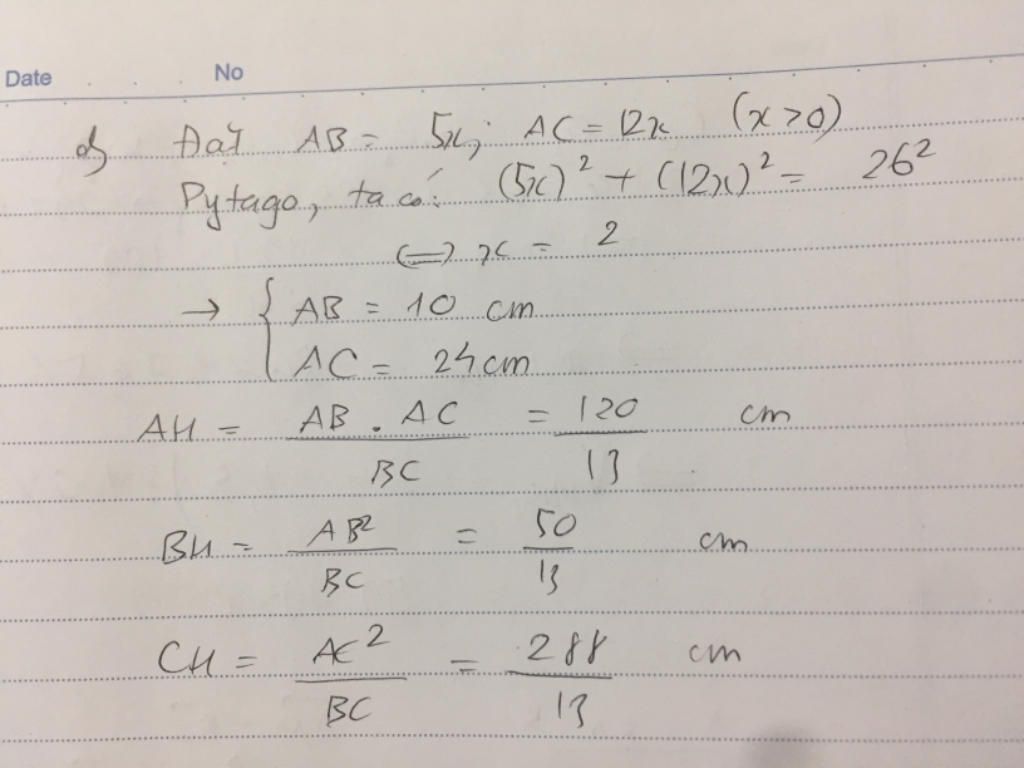 Date No
d) Đặt AB = 5x; AC = 12x (x>0)
Pytago, ta có: (5x)² + (12x)² = 26²
<=> x = 2
→ { AB = 10 cm
AC = 24 cm
AH = AB . AC / BC = 120 / 13 cm
BH = AB² / BC = 50 / 13 cm
CH = AC² / BC = 288 / 13 cm